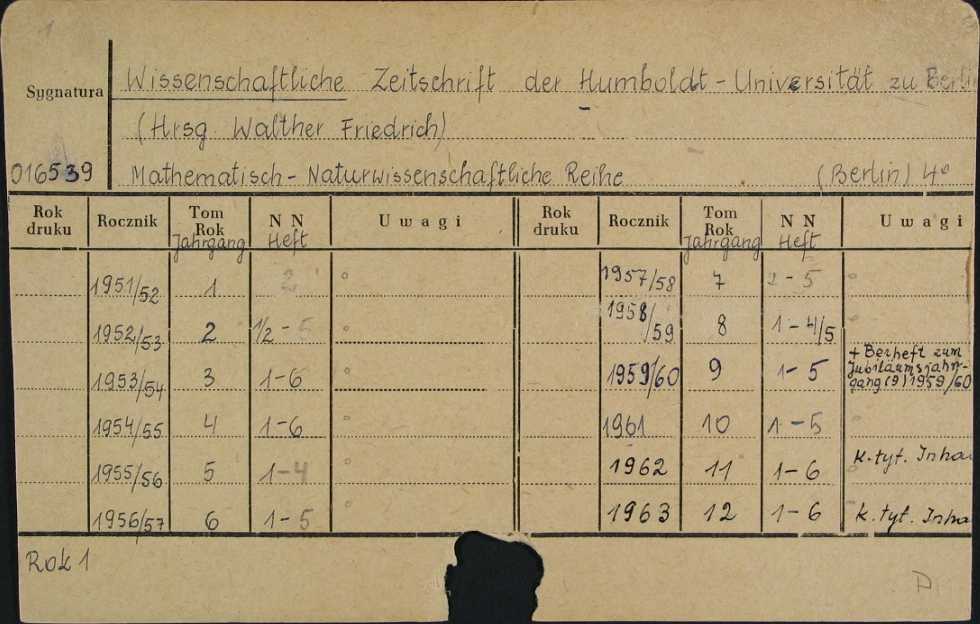 1
Sygnatura
Wissenschaftliche Zeitschrift der Humboldt-Universität zu Berlin
(Hrsg. Walther Friedrich)
016539
Mathematisch-Naturwissenschaftliche Reihe (Berlin) 4°
Rok druku Rocznik Tom Rok Jahrgang N N Heft Uwagi Rok druku Rocznik Tom Rok Jahrgang N N Heft Uwagi
1951/52 1 2 1957/58 7 2-5
1952/53 2 1/2-5 1958/59 8 1-4/5
1953/54 3 1-6 1959/60 9 1-5 + Beiheft zum Jubiläumsjahrgang (9) 1959/60
1954/55 4 1-6 1961 10 1-5
1955/56 5 1-4 1962 11 1-6 k.tyt.
1956/57 6 1-5 1963 12 1-6 k.tyt.
Rok 1